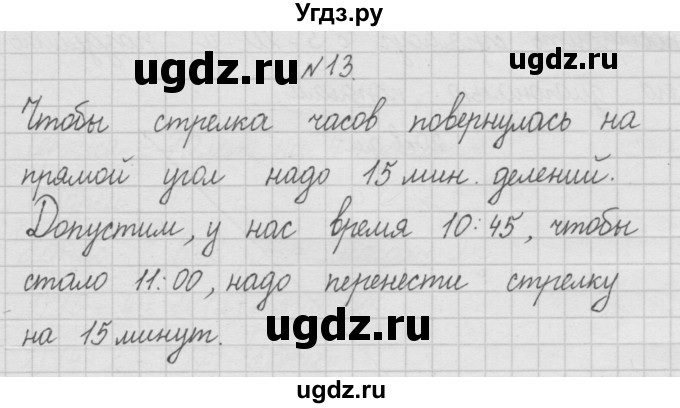 Угдз.ру
ugdz.ru
ugdz.ru №13. ugdz.ru
Чтобы стрелка часов повернулась на
прямой угол надо 15 мин. делений.
Допустим, у нас время 10:45, чтобы
стало 11:00, надо перенести стрелку
на 15 минут.
ugdz.ru
ugdz.ru